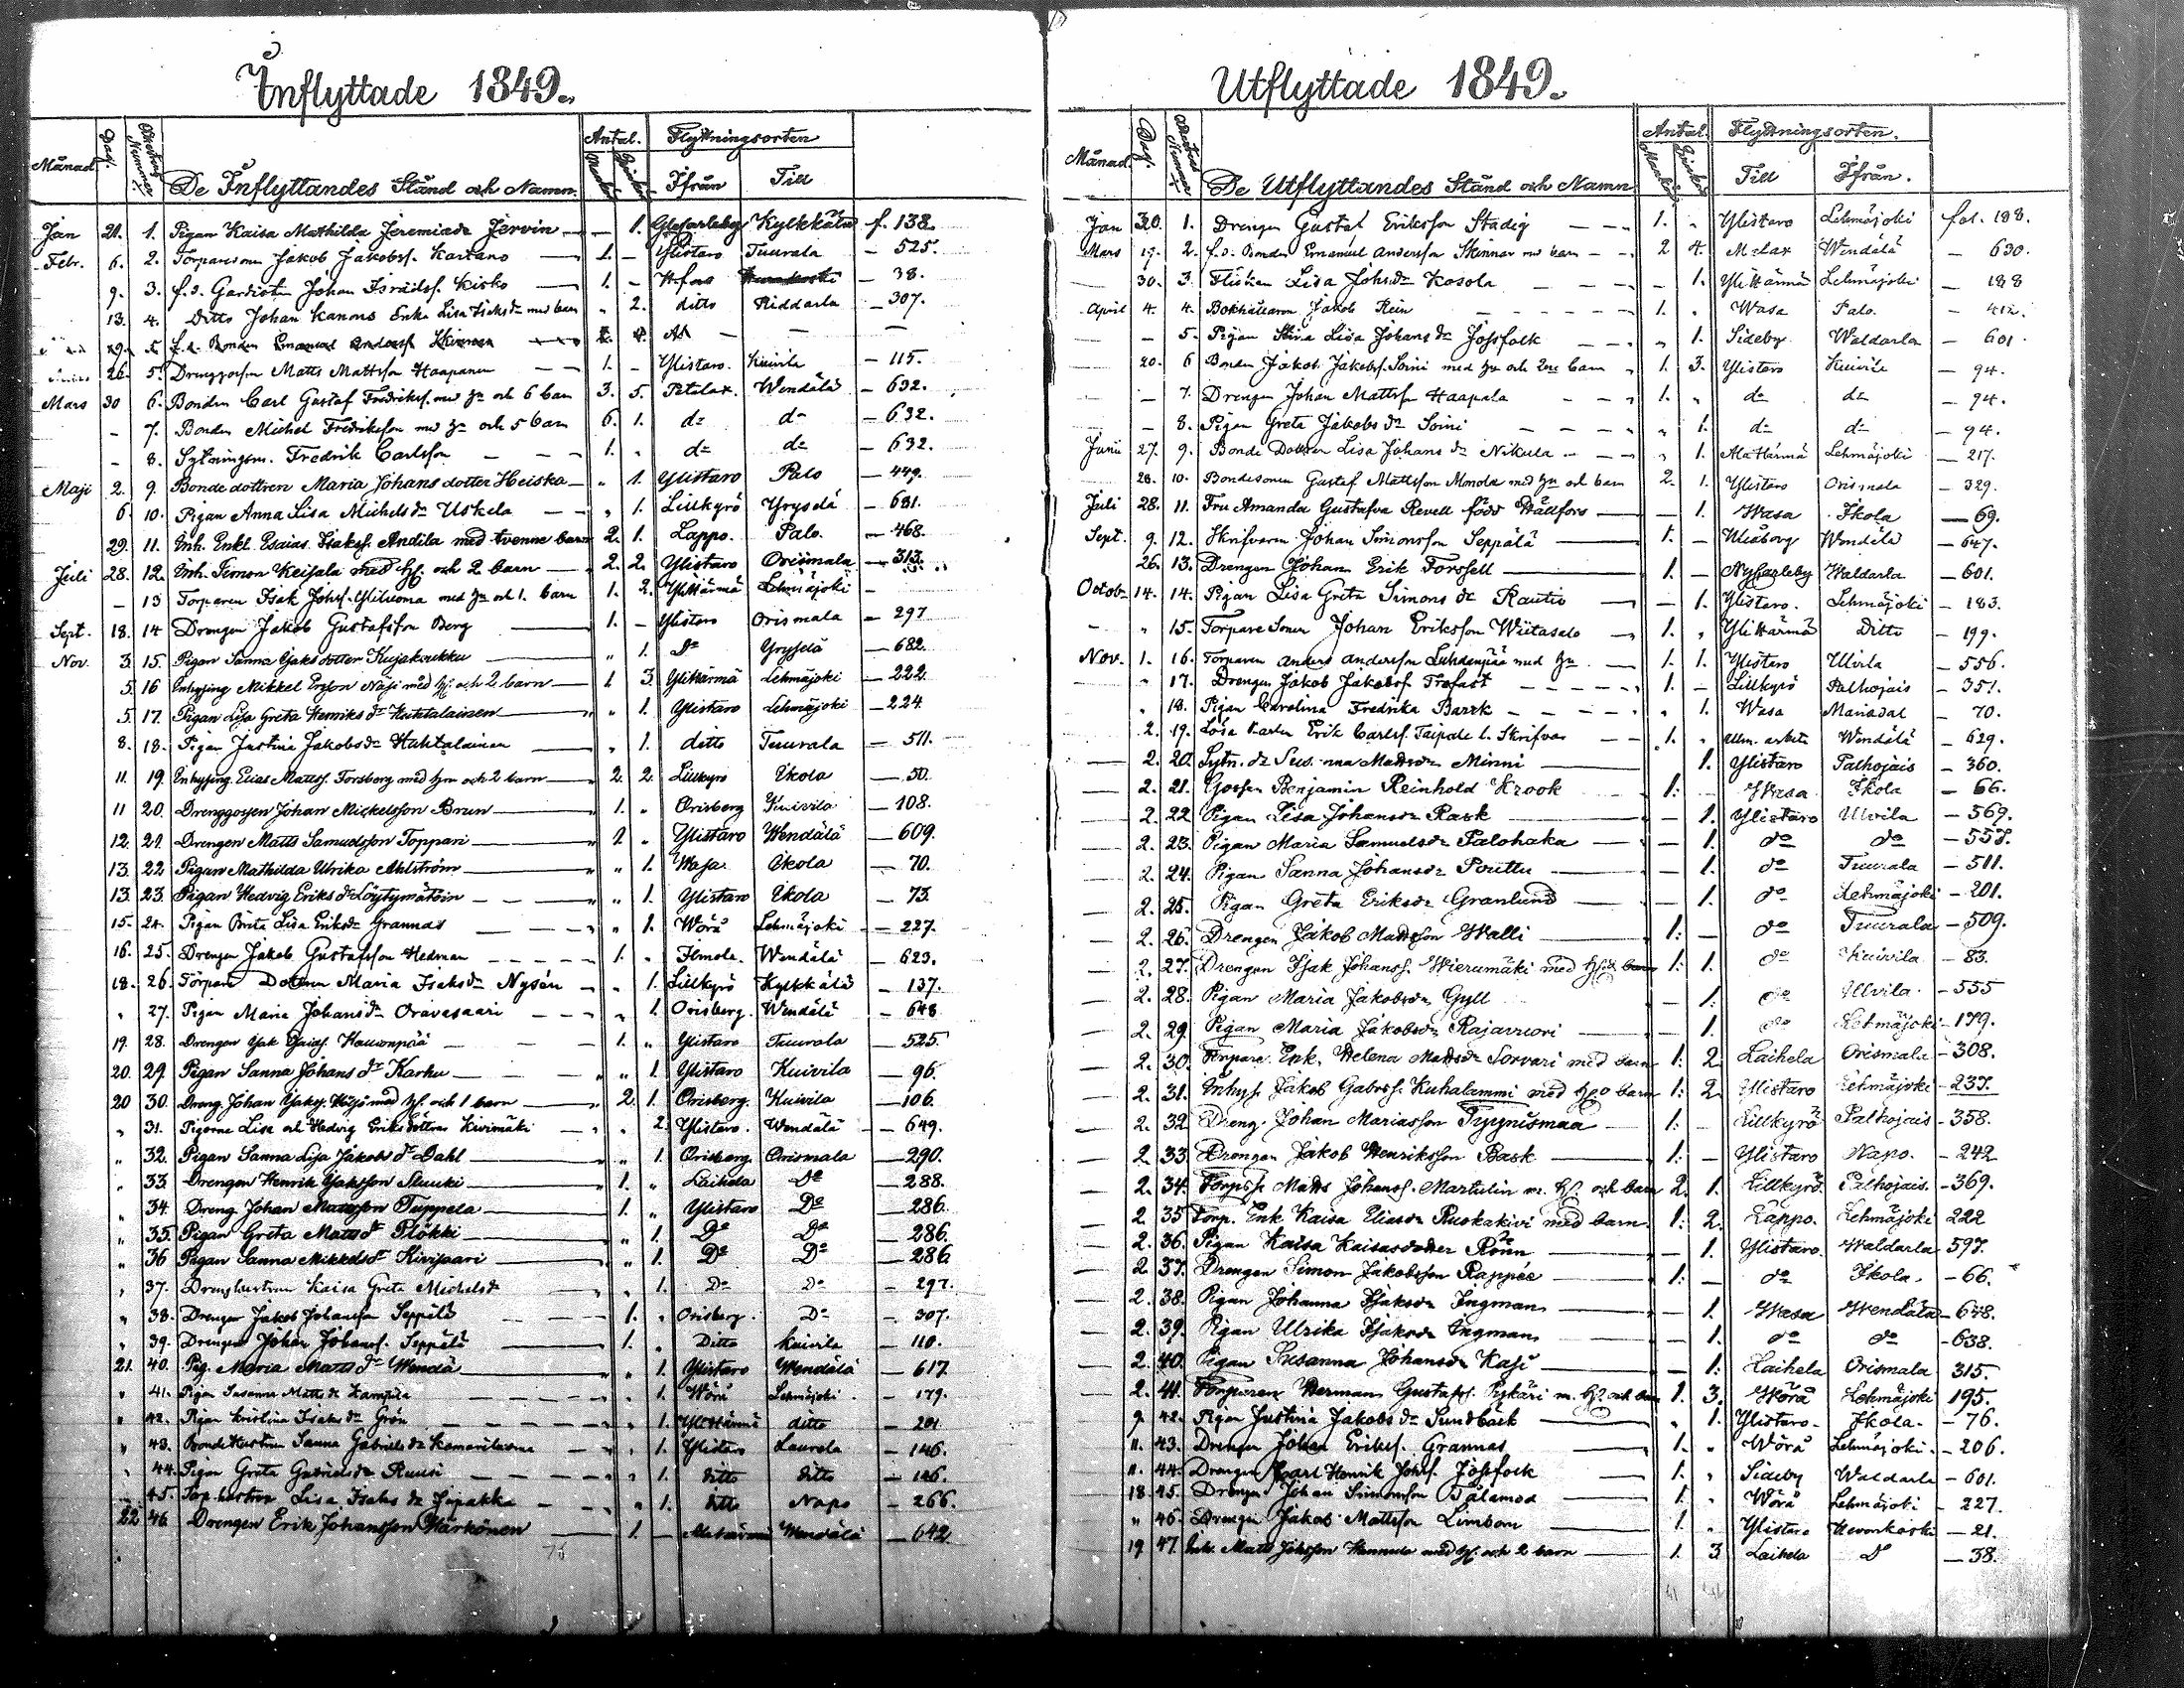 Inflyttade 1849.
Månad Dag. Attestens Nummer De Inflyttandes Stånd och Namn. Antal. Mankön Qvinkön Flyttningsorten Ifrån Till
Jan 21. 1. Pigan Kaisa Mathilda Jeremiæd. Jervin — 1. Kylkkälä f. 138.
Febr. 6. 2. Torparesonen Jakob Jakobss. Kartano 1. — Ylistaro Tuurala — 525.
9. 3. f.d. Gardisten Johan Israelss. Kisko 1. — H.fors — 38.
13. 4. Ditto Johan Kanons Enka Lisa Isaksdr med barn " 2. ditto Riddarla — 307.
29. 5. f.d. Bonden Emanuel Anderss. Skinnar
26. 5. Drenggossen Matts Mattsson Haapanen 1. — Ylistaro. Kuivila — 115.
Mars 30 6. Bonden Carl Gustaf Fredrikss. med hu och 6 barn 3. 5. Petalax. Wendälä — 632.
— 7. Bonden Michel Fredriksson med hu och 5 barn 6. 1. do do — 632.
— 8. Sytningsm. Fredrik Carlsson 1. " do do — 632.
Maji 2. 9. Bonde dottren Maria Johans dotter Heiska " 1. Ylistaro Palo — 449.
6. 10. Pigan Anna Lisa Michelsdr Uskela " 1. Lillkyrö Yryselä — 681.
29. 11. Inh. Enkl. Esaias Isakss. Andila med tvenne barn 2. 1. Lappo. Palo. — 468.
Juli 28. 12. Inh. Simon Keisala med hu. och 2 barn 2. 2. Ylistaro Orismala — 313.
— 13 Torparen Isak Johss. Ylituoma med hu och 1. barn 1. 2. Ylihärmä Lehmäjoki —
Sept. 18. 14 Drengen Jakob Gustafsson Berg 1. — Ylistaro Orismala — 297
Nov. 3. 15. Pigan Sanna Jakobsdotter Kujakoukku " 1. Do Yryselä — 682.
5. 16 Inhysing Mikkel Erson Näsi med hu. och 2 barn 1 3. Ylihärmä Lehmäjoki — 222
5. 17. Pigan Lisa Greta Henriksdr Huhtalainen " 1. Ylistaro Lehmäjoki — 224
8. 18. Pigan Justina Jakobsdr Huhtalainen " 1. ditto Tuurala — 511.
11. 19. Inhysing. Elias Mattss. Forsberg med hu och 2 barn 2. 2. Lillkyro Ikola — 50.
11 20. Drenggossen Johan Mickelsson Brun 1. " Orisberg Kuivila — 108.
12. 21. Drengen Matts Samuelsson Toppari 1. " Ylistaro Wendälä — 609.
13. 22 Pigan Mathilda Ulrika Ahlström " 1. Wasa. Ikola — 70.
13. 23. Pigan Hedvig Eriksdr Löytymätöin " 1. Ylistaro Ikola — 73.
15. 24. Pigan Brita Lisa Eriksdr Grannas " 1. Wörå Lehmäjoki — 227.
16. 25. Drengen Jakob Gustafsson Hedman 1. " Ilmola. Wendälä — 623.
18. 26. Torpare Dottren Maria Isaksdr Nysén " 1. Lillkyrö Kylkkälä — 137.
" 27. Pigan Maria Johansdr Oravasaari " 1. Orisberg. Wendälä — 648
19. 28. Drengen Isak Esaiss. Hauonpää 1. " Ylistaro Tuurala — 525.
20. 29. Pigan Sanna Johansdr Karhu " 1. Ylistaro Kuivila — 96.
20 30. Dreng. Johan Isakss. Köysö med hu. och 1 barn 2. 1. Orisberg. Kuivila — 106.
" 31. Pigorna Lisa och Hedvig Eriksdöttrar Kivimäki " 2. Ylistaro. Wendälä — 649.
" 32. Pigan Sanna Lisa Jakobsdr Dahl " 1. Orisberg. Orismala — 290.
" 33. Drengen Henrik Isaksson Skuuki 1. " Laihela Do — 288.
" 34. Dreng. Johan Mattsson Tuppela 1. " Ylistaro Do — 286.
" 35. Pigan Greta Mattsdr Plökki " 1. Do Do — 286.
" 36 Pigan Sanna Mikkelsdr Kivisaari " 1. Do Do — 286
" 37. Drenghustrun Kaisa Greta Michelsdr " 1. Do Do — 297.
" 38. Drengen Jakob Johansson Seppälä 1. " Orisberg. Do — 307.
" 39. Drengen Johan Johanss. Seppälä 1. " Ditto Kuivila — 110.
21. 40. Pig. Maria Mattsdr Wendä " 1. Ylistaro Wendälä — 617.
" 41. Pigan Susanna Mattsdr Kamppila " 1. Wörå Lehmäjoki — 179.
" 42. Pigan Kristina Isaksdr Grön " 1. Ylihärmä ditto — 201
" 43. Bonde Hustrun Sanna Gabrielsdr " 1. Ylistaro Laurola — 146.
" 44. Pigan Greta Gabrielsdr Ruusi " 1. ditto ditto — 146.
" 45. Torp. hustrun Lisa Isaksdr Jupakka " 1. ditto Napo — 266.
22 46. Drengen Erik Johansson Härkönen 1. — Alahärmä Wendälä — 642
Utflyttade 1849.
Månad Dag. Attestens Nummer De Utflyttandes Stånd och Namn Antal. Mankön Qvinkön Flyttningsorten. Till Ifrån.
Jan 30. 1. Drengen Gustaf Eriksson Stadig 1. " Ylistaro Lehmäjoki fol. 188.
Mars 17. 2. f.d. Bonden Emanuel Andersson Skinnar med barn 2 4. Malax Wendälä — 630.
30. 3. Flickan Lisa Johsdr Kosola — 1. Ylihärmä Lehmäjoki — 188
April 4. 4. Bokhållaren Jakob Rein 1. " Wasa Palo. — 412.
— 5. Pigan Stina Lisa Johansdr Jossfolk " 1. Sideby Waldarla — 601.
20. 6 Bonden Jakob Jakobss. Soini med hu och 2ne barn 1. 3. Ylistaro Kuivila — 94.
— 7. Drengen Johan Mattsson Haapala 1. " do do — 94.
— 8. Pigan Greta Jakobsdr Soini " 1. do do — 94.
Junii 27. 9. Bonde Dottren Lisa Johansdr Nikula " 1. Alahärmä Lehmäjoki — 217.
28. 10. Bondesonen Gustaf Mattsson Mondæ med hu och barn 2. 1. Ylistaro Orismala — 329.
Juli 28. 11. Fru Amanda Gustafva Revell född Hällfors — 1. Wasa Ikola — 69.
Sept. 9. 12. Skrifvaren Johan Simonsson Seppälä 1. — Uleåborg Wendälä — 647.
26. 13. Drengen Johan Erik Forssell 1. — NyCarleby Waldarla — 601.
Octobr 14. 14. Pigan Lisa Greta Simonsdr Rautio — 1. Ylistaro. Lehmäjoki — 183.
— " 15. Torpare Sonen Johan Eriksson Wiitasalo 1. " Ylihärmä Ditto — 199.
Nov. 1. 16. Torparen Anders Andersson Luhdanpää med hu 1. 1. Ylistaro Ulvila — 556.
" 17. Drengen Jakob Jakobss. Trofast 1. — Lillkyrö Palhojais — 351.
" 18. Pigan Carolina Fredrika Barck " 1. Wasa Mariedal — 70.
2. 19. Lösa Karlen Erik Carlss. Taipale l. Skrifvar 1. " Allm. arbete Wendälä — 629.
— 2. 20. Sytn. dr Susanna Mattsdr Minni 1. Ylistaro Palhojais — 360.
— 2. 21. Gossen Benjamin Reinhold Krook 1. — Wasa Ikola — 66.
— 2. 22. Pigan Lisa Johansdr Rask — 1. Ylistaro Ulvila — 569.
— 2. 23. Pigan Maria Samuelsdr Palohaka — 1. do do — 557.
— 2. 24. Pigan Sanna Johansdr Pouttu — 1. do Tuurala — 511.
— 2. 25. Pigan Greta Eriksdr Granlund — 1. do Lehmäjoki — 201.
— 2. 26. Drengen Jakob Mattsson Walli 1. — do Tuurala — 509.
— 2. 27. Drengen Isak Johanss. Wierumäki med hu. o. barn 1. 1. do Kuivila — 83.
— 2. 28. Pigan Maria Jakobsdr Gyll — 1. do Ulvila — 555
— 2. 29. Pigan Maria Jakobsdr Rajavuori — 1. do Lehmäjoki — 179.
— 2. 30. Torpare Enk. Helena Mattsdr Sorvari med barn 1. 2. Laihela Orismala — 308.
— 2. 31. Inhys. Jakob Gabrss. Kuhalammi med hu. o barn 1. 2. Ylistaro Lehmäjoki — 237.
— 2. 32 Dreng. Johan Mariasson Tyynismaa 1. — Lillkyrö Palhojais — 358.
— 2 33 Drengen Jakob Henriksson Bask 1. — Ylistaro Napo. — 242
— 2. 34. Torpss. Matts Johanss. Martulin m. hu. och barn 2. 1. Lillkyrö. Palhojais. — 369.
— 2 35 Torp. Enk Kaisa Eliasdr Ruskakivi med barn. 1. 2. Lappo. Lehmäjoki 222
— 2. 36. Pigan Kaisa Kaisasdotter Rönn — 1. Ylistaro. Waldarla 597.
— 2 37. Drengen Simon Jakobsson Rappée 1. — do Ikola. — 66.
— 2. 38. Pigan Johanna Isaksdr Ingman — 1. Wasa Wendälä — 648.
— 2. 39. Pigan Ulrika Isaksdr Ingman — 1. do do — 638.
— 2. 40. Pigan Susanna Johansdr Kasi — 1. Laihela Orismala 315.
— 2. 41. Torparen Herman Gustafss. Pykäri m. hu. och barn 1. 3. Wörå Lehmäjoki 195.
9. 42. Pigan Justina Jakobsdr Sundbäck " 1. Ylistaro. Ikola. — 76.
11. 43. Drengen Johan Erikss. Grannas 1. " Wörå Lehmäjoki. — 206.
11. 44. Drengen Carl Henrik Johss. Jossfolk 1. " Sideby Waldarla — 601.
18. 45. Drengen Johan Simonsson Tålamod 1. " Wörå Lehmäjoki — 227.
" 46. Drengen Jakob Mattsson Limbom 1. " Ylistaro Hevonkoski — 21.
19. 47. Inh. Matts Johsson Hannula med hu. och 2 barn 1. 3 Laihela Do — 38.